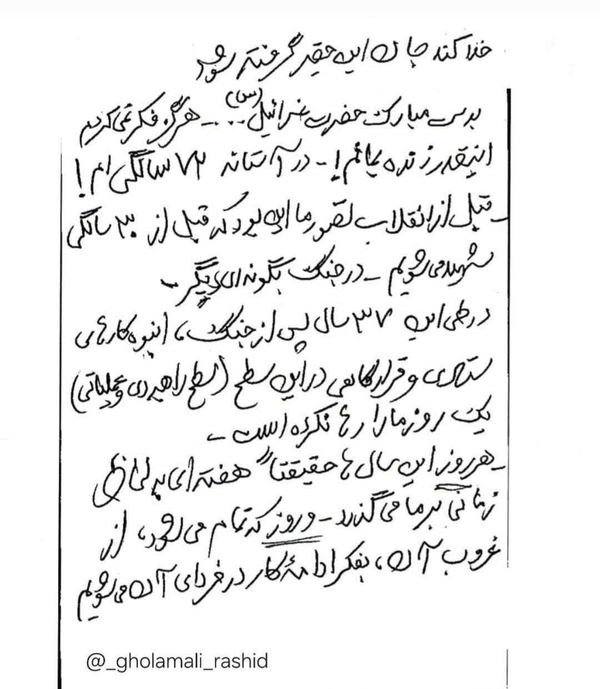 خدا کند جان این حقیر گرفته شود
بدست مبارک حضرت عزرائیل (س) .. - هرگز فکر نمی کردم
اینقدر زنده بمانم! - در آستانه ۷۲ سالگی ام!
- قبل از انقلاب تصور ما این بود که قبل از ۳۰ سالگی
شهید می شویم - در جنگ بگونه ای دیگر -
در طی این ۳۷ سال پس از جنگ، انبوه کارهای
ستادی و قرارگاهی در این سطح (سطح راهبردی و عملیاتی)
یک روز ما را رها نکرده است -
- هر روز این سال ها حقیقتاً هفته ای به لحاظ
زمانی بر ما می گذرد - و روز که تمام می شود، از
غروب آن، بفکر ادامۀ کار در فردای آن می شویم
@_gholamali_rashid